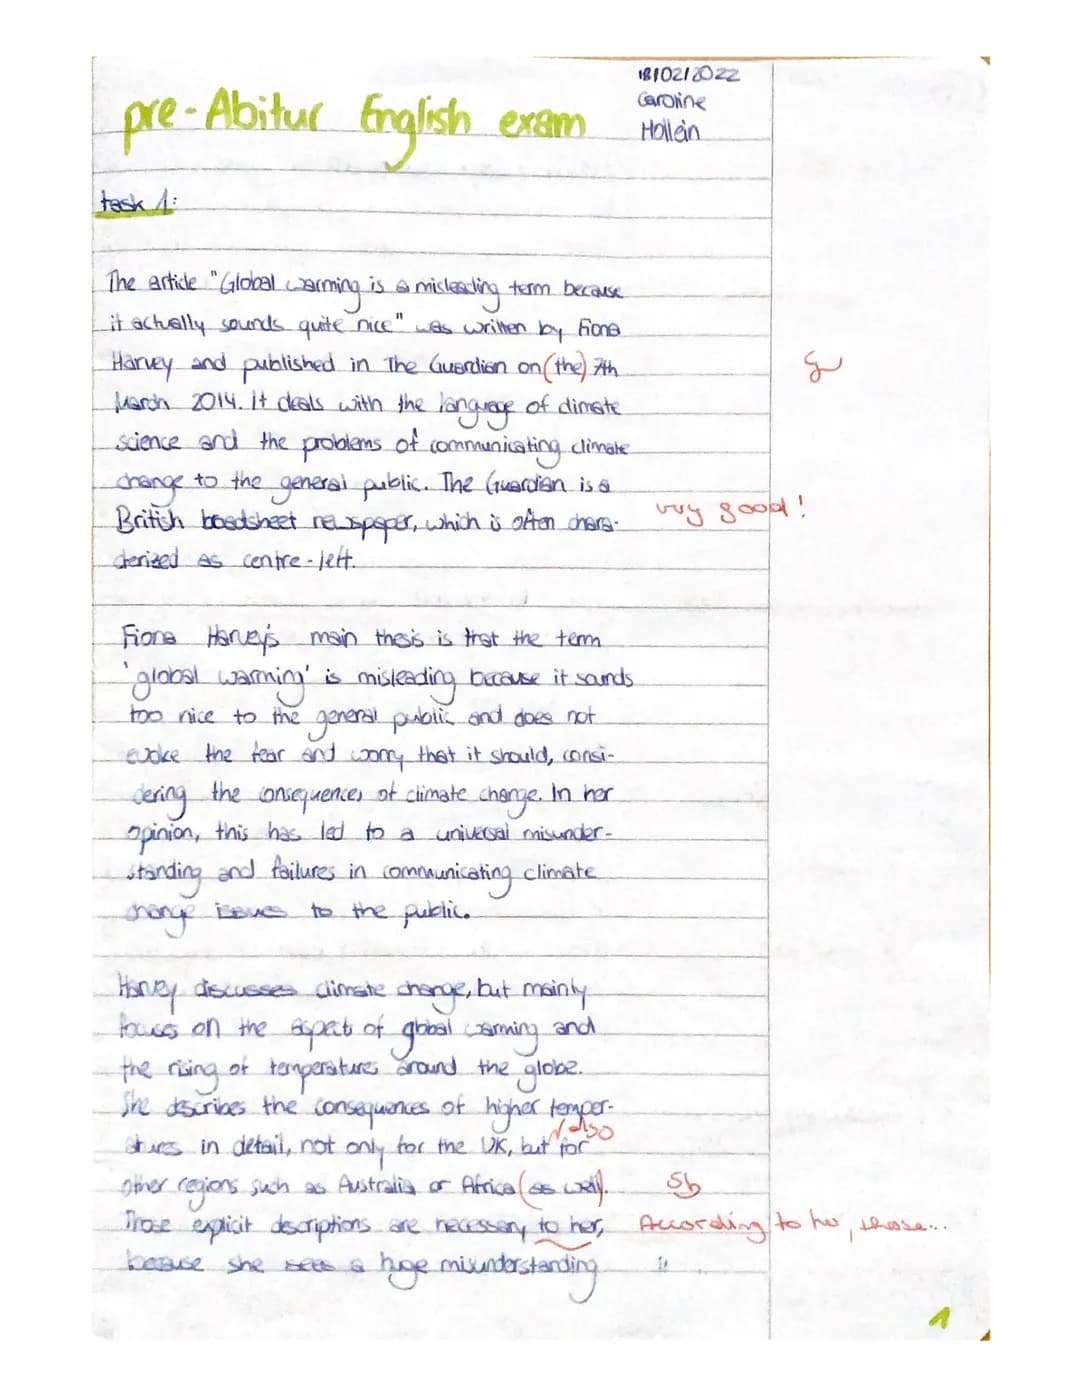 18/02/2022
Caroline
Hollein
pre-Abitur English exam
task 1:
The article "Global warming is a misleading term because
it actually sounds quite nice" was written by Fiona
Harvey and published in The Guardian on (the) 7th
March 2014. It deals with the language of climate
science and the problems of communicating climate
change to the general public. The Guardian is a
British boadsheet newspaper, which is often chara-
very good!
cterized as centre-left.
Fiona Harvey's main thesis is that the term
'global warming' is misleading because it sounds
too nice to the general public and does not
evoke the fear and worry that it should, consi-
dering the consequences of climate change. In her
opinion, this has led to a universal misunder-
standing and failures in communicating climate
change issues to the public.
Harvey discusses climate change, but mainly
focuses on the aspect of global warming and
the rising of temperatures around the globe.
She describes the consequences of higher temper-
√ also
atures in detail, not only for the UK, but for
other regions such as Australia or Africa (as well).
Sb
Those explicit descriptions are necessary to her,
According to her, those...
because she sees a huge misunderstanding
1